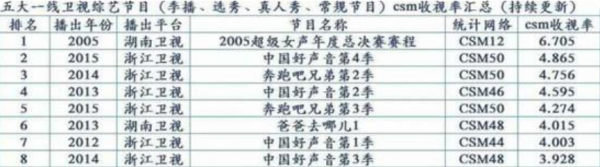 五大一线卫视综艺节目(季播、选秀、真人秀、常规节目)csm收视率汇总(持续更新)
排名 播出年份 播出平台 节目名称 统计网络 csm收视率
1 2005 湖南卫视 2005超级女声年度总决赛赛程 CSM12 6.705
2 2015 浙江卫视 中国好声音第4季 CSM50 4.865
3 2014 浙江卫视 奔跑吧兄弟第2季 CSM50 4.756
4 2013 浙江卫视 中国好声音第2季 CSM46 4.595
5 2015 浙江卫视 奔跑吧兄弟第3季 CSM50 4.274
6 2013 湖南卫视 爸爸去哪儿1 CSM48 4.015
7 2012 浙江卫视 中国好声音第1季 CSM44 4.003
8 2014 浙江卫视 中国好声音第3季 CSM48 3.928